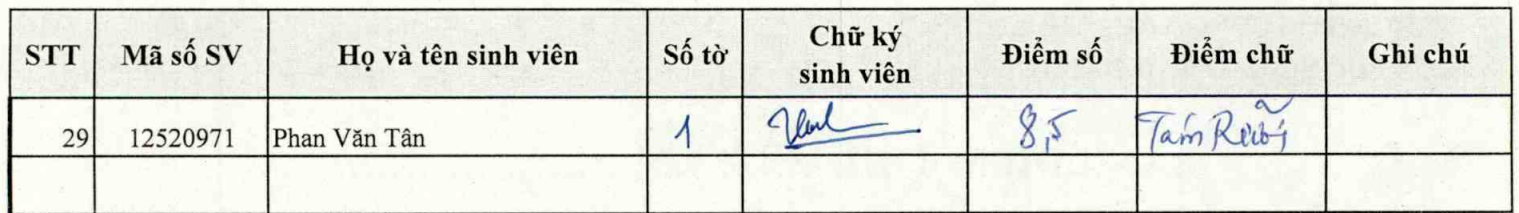 STT Mã số SV Họ và tên sinh viên Số tờ Chữ ký sinh viên Điểm số Điểm chữ Ghi chú
29 12520971 Phan Văn Tân 1 8,5 Tám Rưỡi